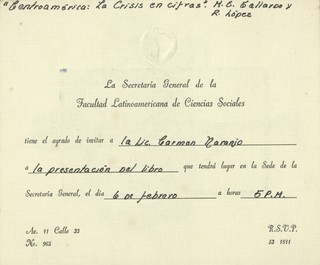 "Centroamérica: La Crisis en cifras". M.E. Gallardo y
R. López
La Secretaría General de la
Facultad Latinoamericana de Ciencias Sociales
tiene el agrado de invitar a la Lic. Carmen Naranjo
a la presentación del libro que tendrá lugar en la Sede de la
Secretaría General, el día 6 de febrero a horas 5 P.M.
Av. 11 Calle 33 R.S.V.P.
No. 963 53 1511